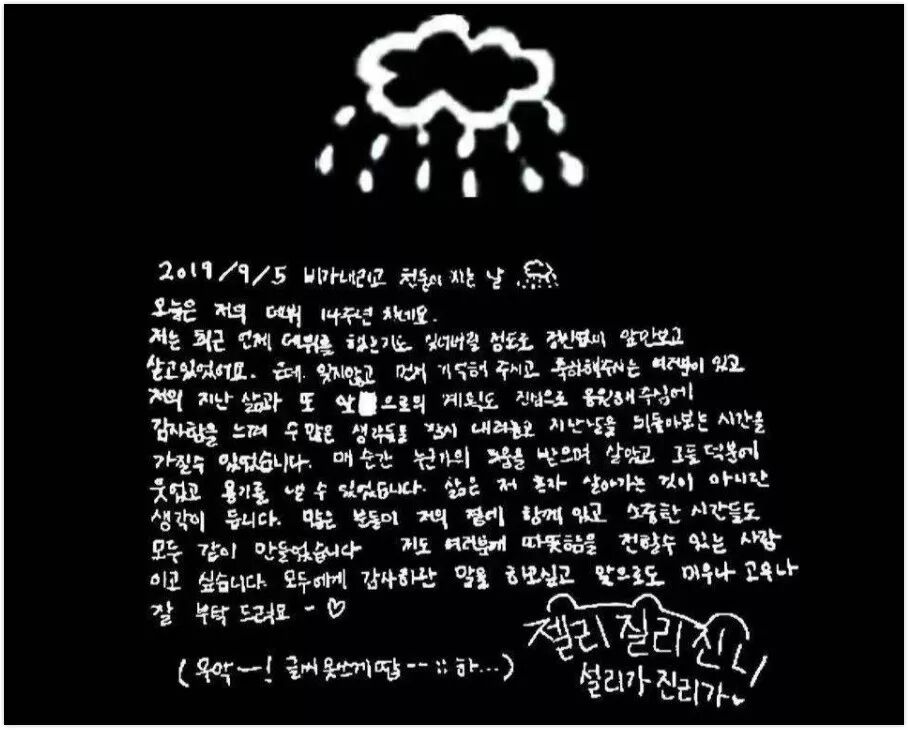 2019/9/5 비가내리고 천둥이 치는 날
오늘은 저의 데뷔 14주년 차네요.
저는 최근 언제 데뷔를 했는지도 잊어버릴 정도로 정신없이 앞만보고
살고있었어요. 근데. 잊지않고 먼저 기억해 주시고 축하해주시는 여러분이 있고
저의 지난 삶과 또 앞으로의 계획도 진심으로 응원해주심에
감사함을 느끼며 수많은 생각들을 잠시 내려놓고 지난날을 뒤돌아보는 시간을
가질수 있었습니다. 매 순간 누군가의 도움을 받으며 살았고 그들 덕분에
웃었고 용기를 낼 수 있었습니다. 삶은 저 혼자 살아가는 것이 아니란
생각이 듭니다. 많은 분들이 저의 곁에 함께 있고 소중한 시간들도
모두 같이 만들었습니다 저도 여러분께 따뜻함을 전할수 있는 사람
이고 싶습니다. 모두에게 감사하단 말을 해보싶고 앞으로도 미우나 고우나
잘 부탁 드려요 ~ ♡
(우악ㅡ! 글씨 못쓰게땁 -- :: 하...)
젤리 질리 진니
설리가 진리가